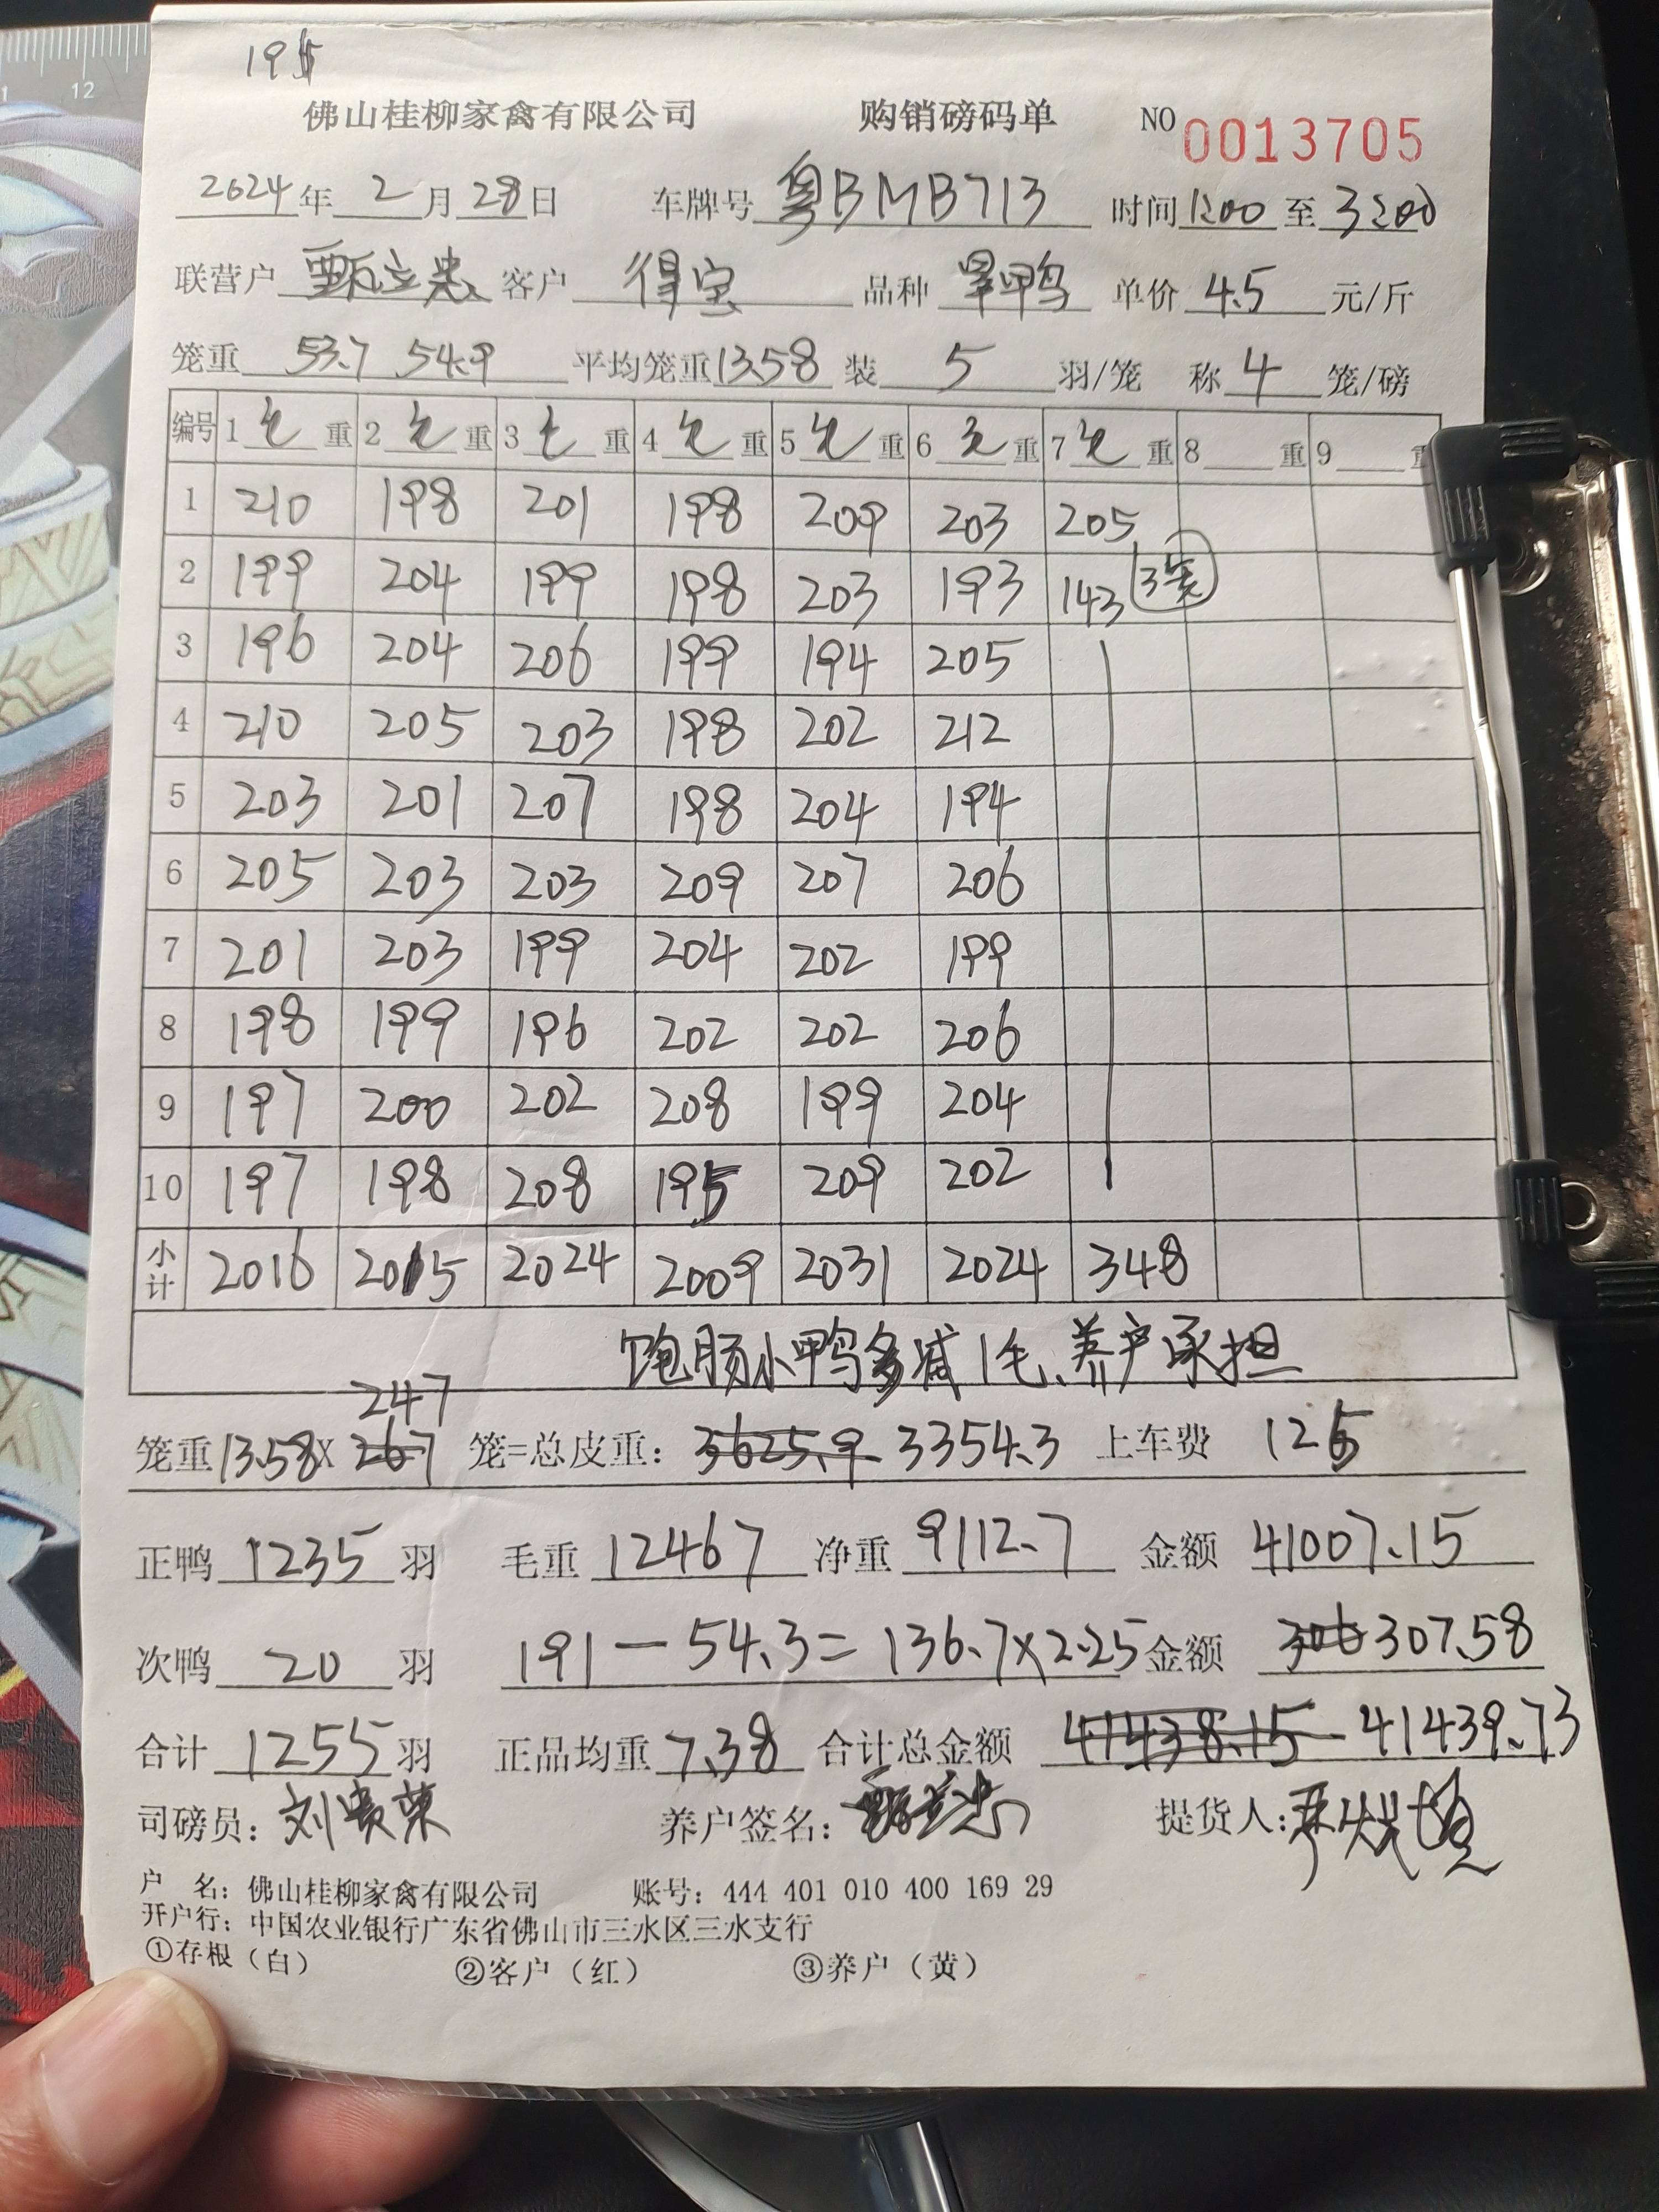 195
佛山桂柳家禽有限公司 购销磅码单 NO 0013705
2024年 2月 28日 车牌号 粤BMB713 时间 12:00 至 3:00
联营户 甄立忠 客户 得宝 品种 旱鸭 单价 4.5 元/斤
笼重 53.7 54.9 平均笼重 13.58 装 5 羽/笼 称 4 笼/磅
编号 1 毛 重 2 毛 重 3 毛 重 4 毛 重 5 毛 重 6 毛 重 7 毛 重 8 重 9 重
1 210 198 201 198 209 203 205
2 199 204 199 198 203 193 143 3笼
3 196 204 206 199 194 205
4 210 205 203 198 202 212
5 203 201 207 198 204 194
6 205 203 203 209 207 206
7 201 203 199 204 202 199
8 198 199 196 202 202 206
9 197 200 202 208 199 204
10 197 198 208 195 209 202
小计 2016 2015 2024 2009 2031 2024 348
饱肠小鸭多减1毛、养户承担
247
笼重 13.58X 267 笼=总皮重: 3625.9 3354.3 上车费 125
正鸭 1235 羽 毛重 12467 净重 9112.7 金额 41007.15
次鸭 20 羽 191-54.3=136.7×2.25 金额 306 307.58
合计 1255 羽 正品均重 7.38 合计总金额 41438.15 41439.73
司磅员: 刘贵荣 养户签名: 甄立忠 提货人:
户 名: 佛山桂柳家禽有限公司 账号: 444 401 010 400 169 29
开户行: 中国农业银行广东省佛山市三水区三水支行
①存根(白) ②客户(红) ③养户(黄)
12